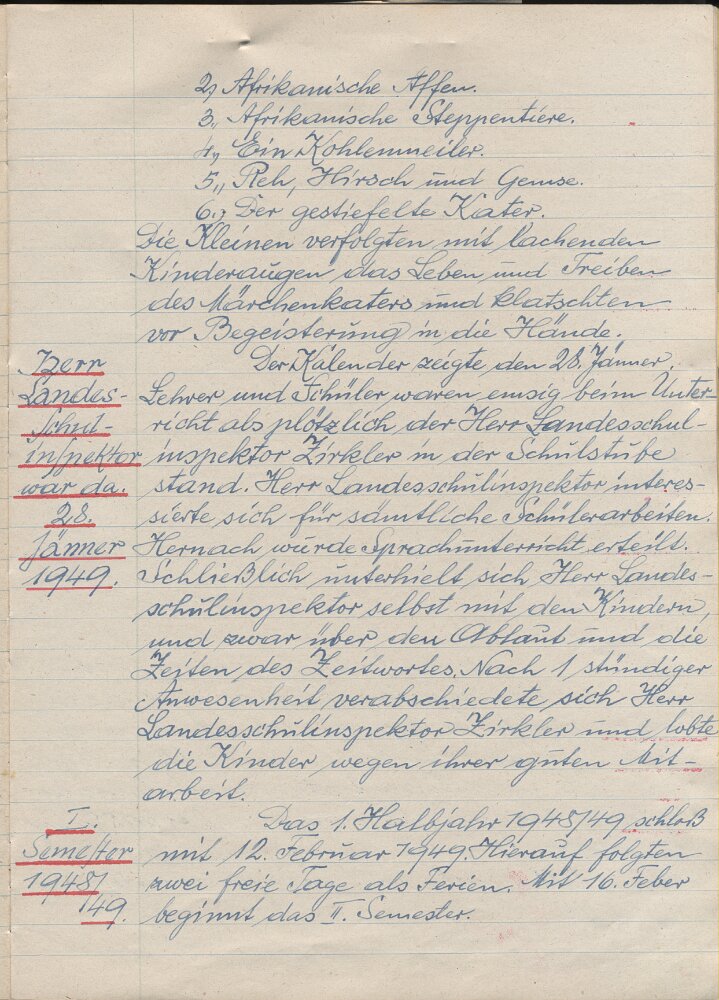 2., Afrikanische Affen.
3., Afrikanische Steppentiere.
4., Ein Kohlenmeiler.
5., Reh, Hirsch und Gemse.
6., Der gestiefelte Kater.
Die Kleinen verfolgten mit lachenden
Kinderaugen das Leben und Treiben
des Märchenkaters und klatschten
vor Begeisterung in die Hände.
Herr
Landes-
schul-
inspektor
war da.
28.
Jänner
1949.
Der Kalender zeigte den 28. Jänner.
Lehrer und Schüler waren emsig beim Unter-
richt als plötzlich der Herr Landesschul-
inspektor Zirkler in der Schulstube
stand. Herr Landesschulinspektor interes-
sierte sich für sämtliche Schülerarbeiten.
Hernach wurde Sprachunterricht erteilt.
Schließlich unterhielt sich Herr Landes-
schulinspektor selbst mit den Kindern,
und zwar über den Ablaut und die
Zeiten des Zeitwortes. Nach 1 stündiger
Anwesenheit verabschiedete sich Herr
Landesschulinspektor Zirkler und lobte
die Kinder wegen ihrer guten Mit-
arbeit.
I.
Semester
1948/
149.
Das 1. Halbjahr 1948/49 schloß
mit 12. Februar 1949. Hierauf folgten
zwei freie Tage als Ferien. Mit 16. Feber
beginnt das II. Semester.